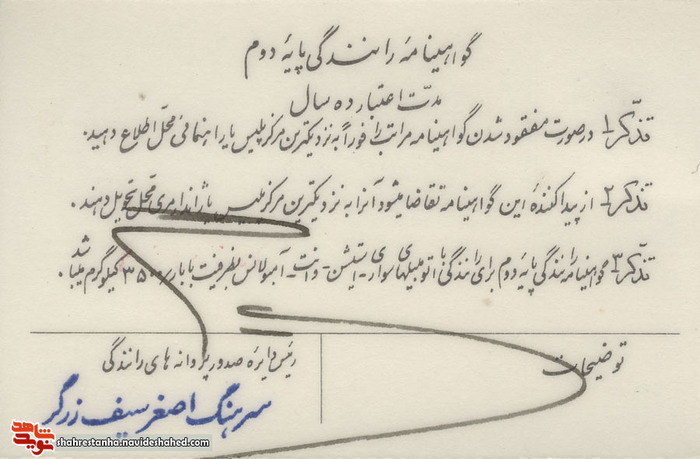 گواهینامهٔ رانندگی پایهٔ دوم
مدّت اعتبار ده سال
تذکّر۱- درصورت مفقود شدن گواهینامه مراتب را فوراً به نزدیکترین مرکز پلیس یا راهنمائی محّل اطلاع دهید.
تذکّر۲- از پیدا کنندهٔ این گواهینامه تقاضا میشود آنرا به نزدیکترین مرکز پلیس یا ژاندارمری محّل تحویل دهند.
تذکّر۳- گواهینامه رانندگی پایهٔ دوم برای رانندگی با اتومبیلهای سواری - استیشن - وانت - آمبولانس بظرفیت با بار ۳۵۰۰ کیلوگرم میباشد.
توضیحات
رئیس دایرهٔ صدور پروانه های رانندگی
سرهنگ اصغر سیف زرگر
نوید شاهد
shahrestanha.navideshahed.com